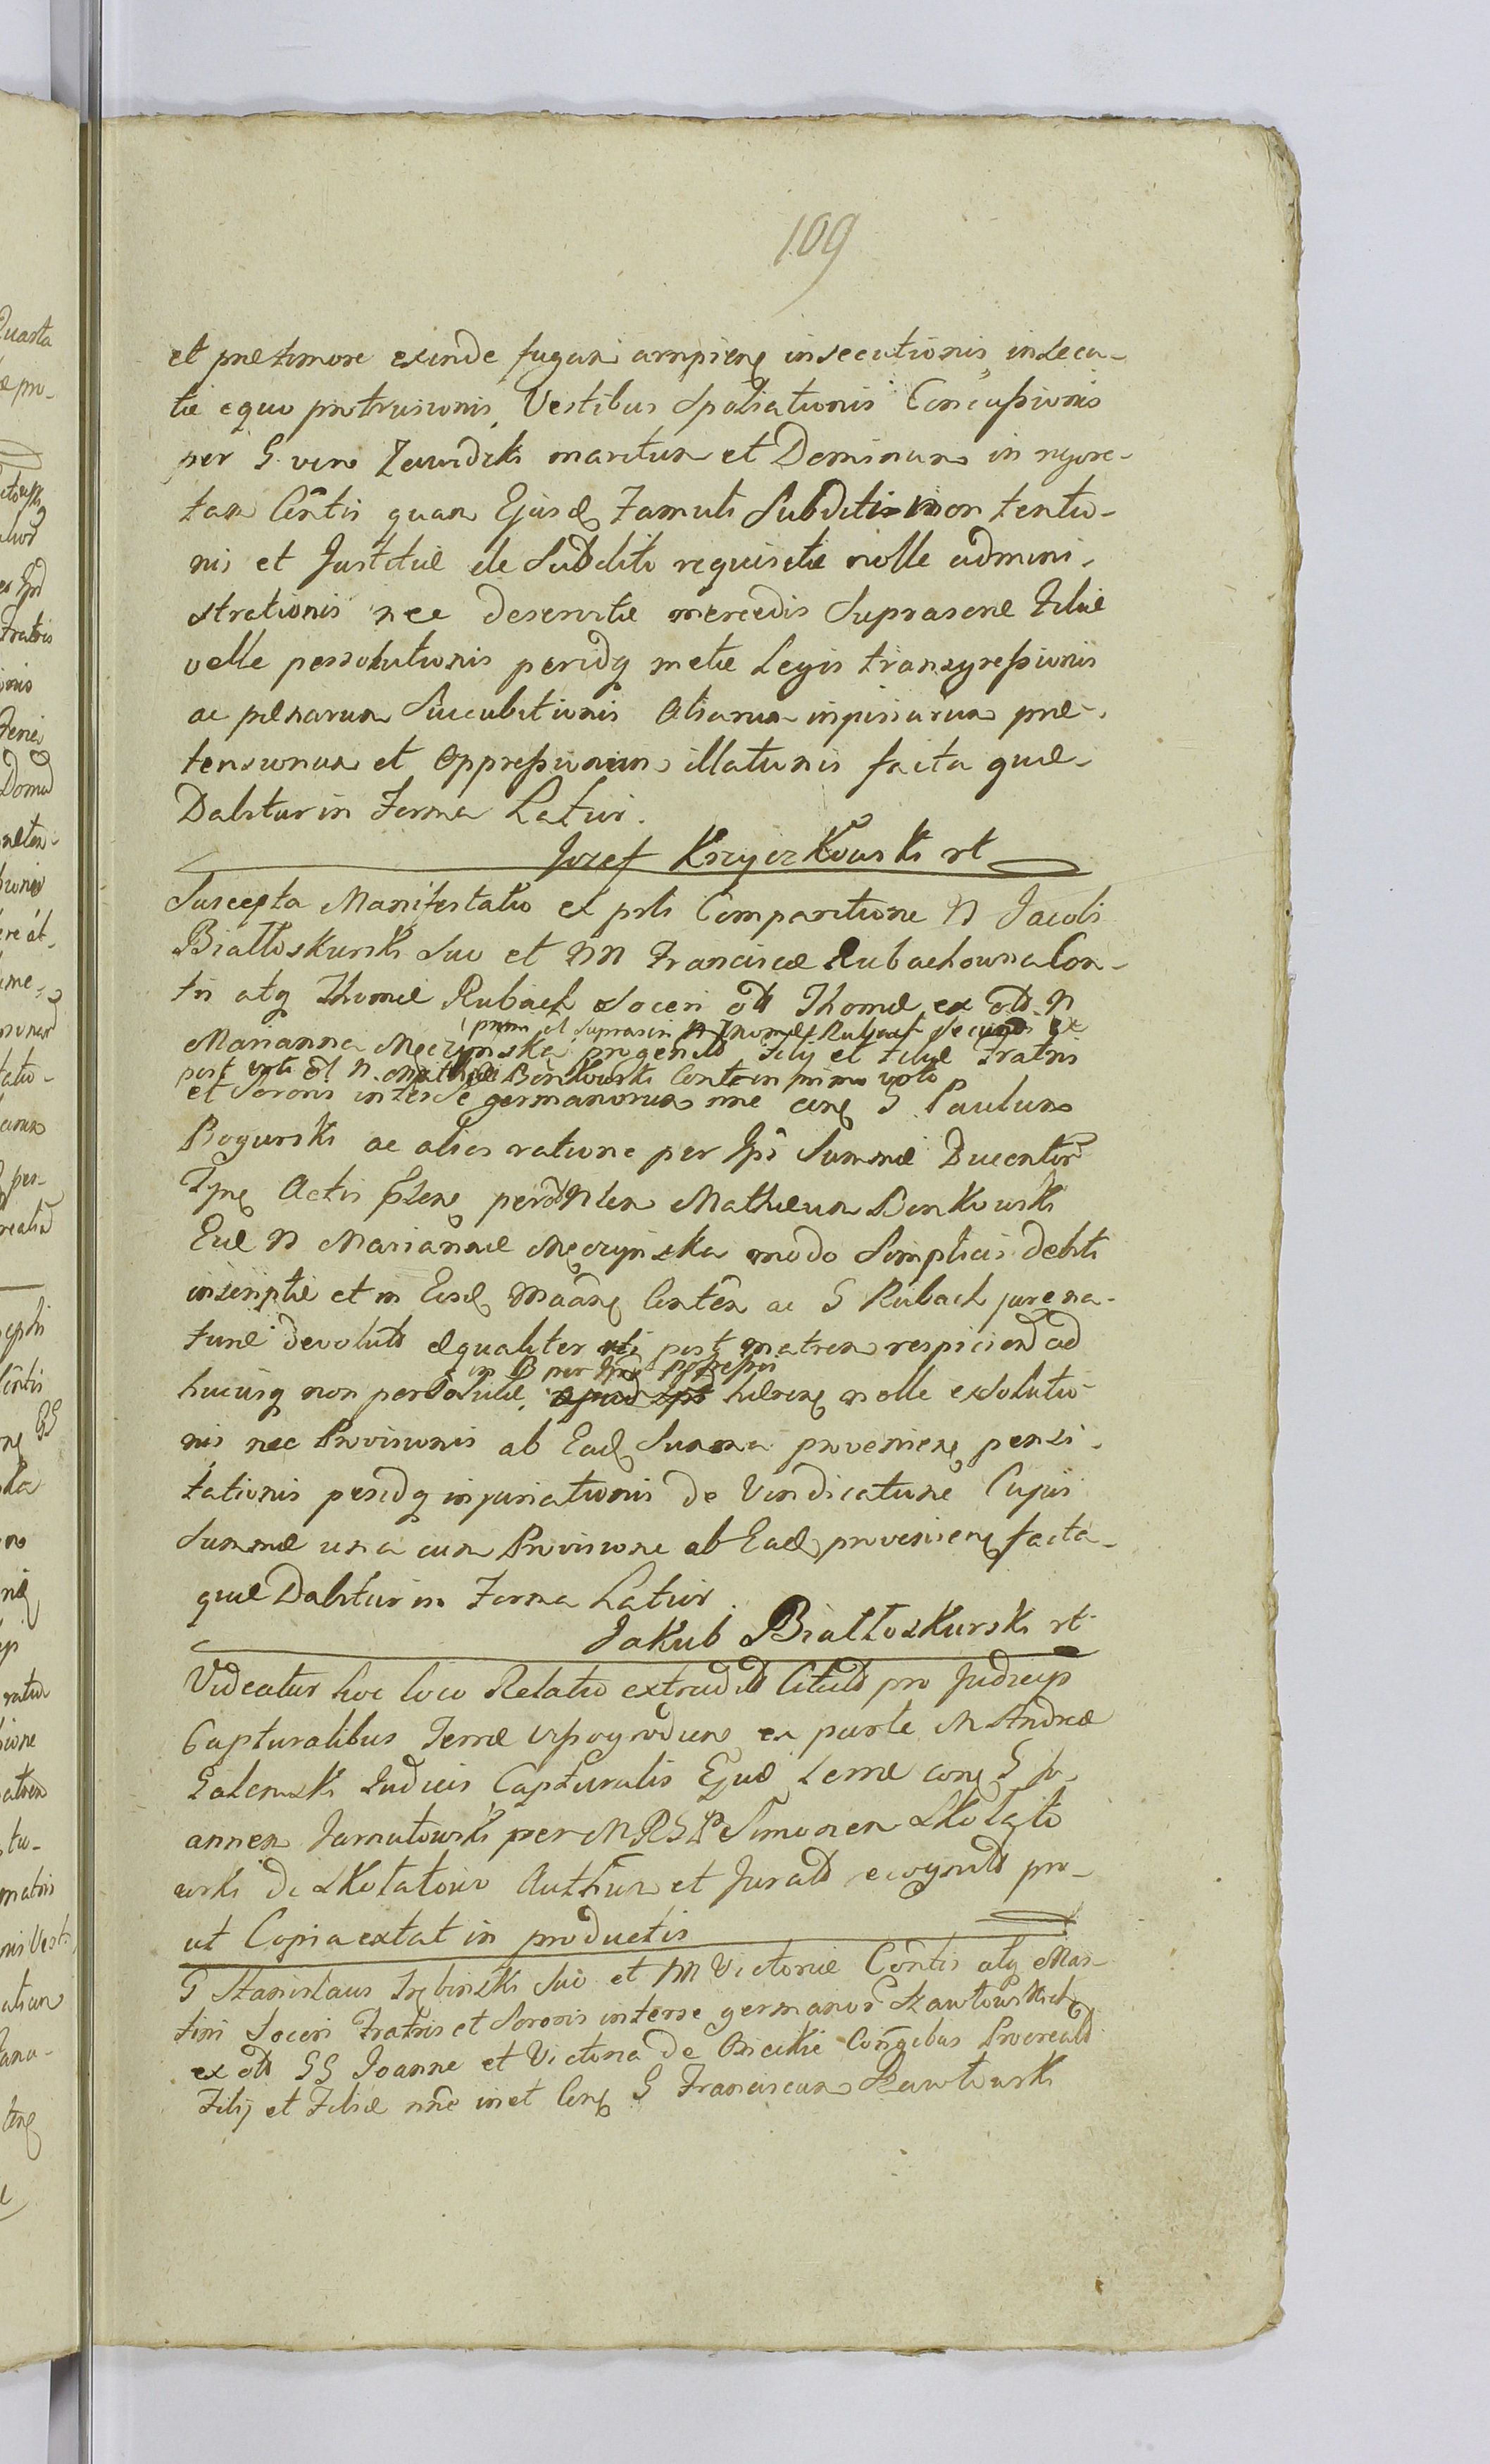 109
et præ timore exinde fugam arripien insecutionis, insecu-
tæ equo protrusionis, Vestibus Spoliationis Concussionis
per G. vero Zawidzki maritum et Dominum in rigore-
tam Contis quam Ejusd Famuli Subditi non tentio-
nis et Justitiæ de Subdito requisitæ nolle admini-
strationis nec deservitæ mercedis Suprascræ Filiæ
velle persolutionis peridq metæ Legis transgressionis
ac pænarum Succubitionis Aliarum injuriarum præ-
tensionum et Oppressionum illationis facta quæ-
Dabitur in Forma Latiori.
Jozef Krzyczkowski rt
Suscepta Manifestatio ex psli Comparitione N Jacobi
Białłoskurski Suo et NN Franciscæ Rubachowna Con-
tis atq Thomæ Rubach Soceri oli Thomæ ex oli N
primi et Suprascri N Thomæ Rubach Secundi Ex
Marianna Męczynska progenit Filij et Filiæ Fratris
post oli N. Mathæi Bonkowski Contem primi voto
et Sororis inter Se germanorum nne cirq G Paulum
Bogurski ac alias ratione per Ips Summæ Ducentor
Tpns Actis pslen per Nlem Mathæum Bonkowski
Suæ N Mariannæ Męczynska modo Simplicis debiti
inscriptæ et in Eand Maansq Conten ac G Rubach jure na-
turæ devoluto æqualiter uti post matrem respiciend ad
in B per Ipsd possessis
hucusq non persolutæ, hæren nolle exsolutio-
nis nec Provisionis ab Ead Summa provenien pensi-
tationis peridq injuriationis de Vindicatione Cujus
Summæ una cum Provisione ab Ead provenien facta-
quæ Dabitur in Forma Latiori.
Jakub Białłoskurski rt
Videatur hoc loco Relatio extradit Citat pro Judicijs
Capturalibus Terræ Vyszogrodien ex parte M Andreæ
Galemski Judicis Capturalis Ejusd terræ conq G Jo-
annem Jarnutowski per MRSP Simonem Skołato
wski de Skołatowo Authum et Jurat recognit pro-
ut Copia extat in productis
G Stanislaus Trębinski Suo et M Victoriæ Contis atq Mar-
tini Soceri Fratris et Sororis inter se germanor Szawłowskich
ex olis GG Joanne et Victoria de Conjugibus Procreat
Filij et Filiæ nne in et conq G Franciscum Szawłowski